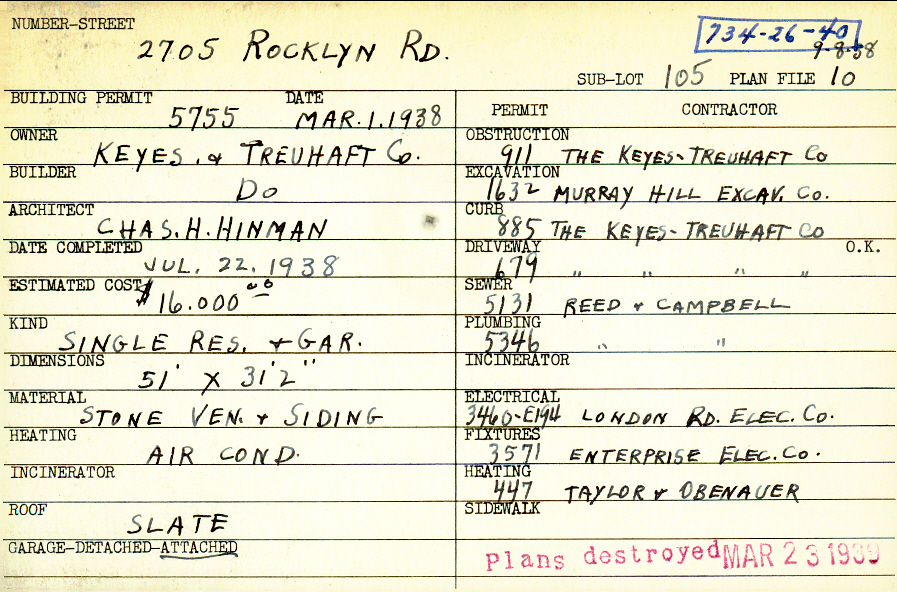 NUMBER-STREET
2705 ROCKLYN RD.
734-26-40
9-8-38
SUB-LOT 105 PLAN FILE 10
BUILDING PERMIT DATE
5755 MAR.1.1938
OWNER
KEYES. & TREUHAFT CO.
BUILDER
DO
ARCHITECT
CHAS. H. HINMAN
DATE COMPLETED
JUL. 22. 1938
ESTIMATED COST
$16.000 00
KIND
SINGLE RES. & GAR.
DIMENSIONS
51' X 31'2"
MATERIAL
STONE VEN. & SIDING
HEATING
AIR COND.
INCINERATOR
ROOF
SLATE
GARAGE-DETACHED-ATTACHED
PERMIT CONTRACTOR
OBSTRUCTION
911 THE KEYES-TREUHAFT CO
EXCAVATION
1632 MURRAY HILL EXCAV. CO.
CURB
885 THE KEYES-TREUHAFT CO
DRIVEWAY O.K.
679 " " " "
SEWER
5131 REED & CAMPBELL
PLUMBING
5346 " "
INCINERATOR
ELECTRICAL
3460-E194 LONDON RD. ELEC. CO.
FIXTURES
3571 ENTERPRISE ELEC. CO.
HEATING
447 TAYLOR & OBENAUER
SIDEWALK
Plans destroyed MAR 23 1939